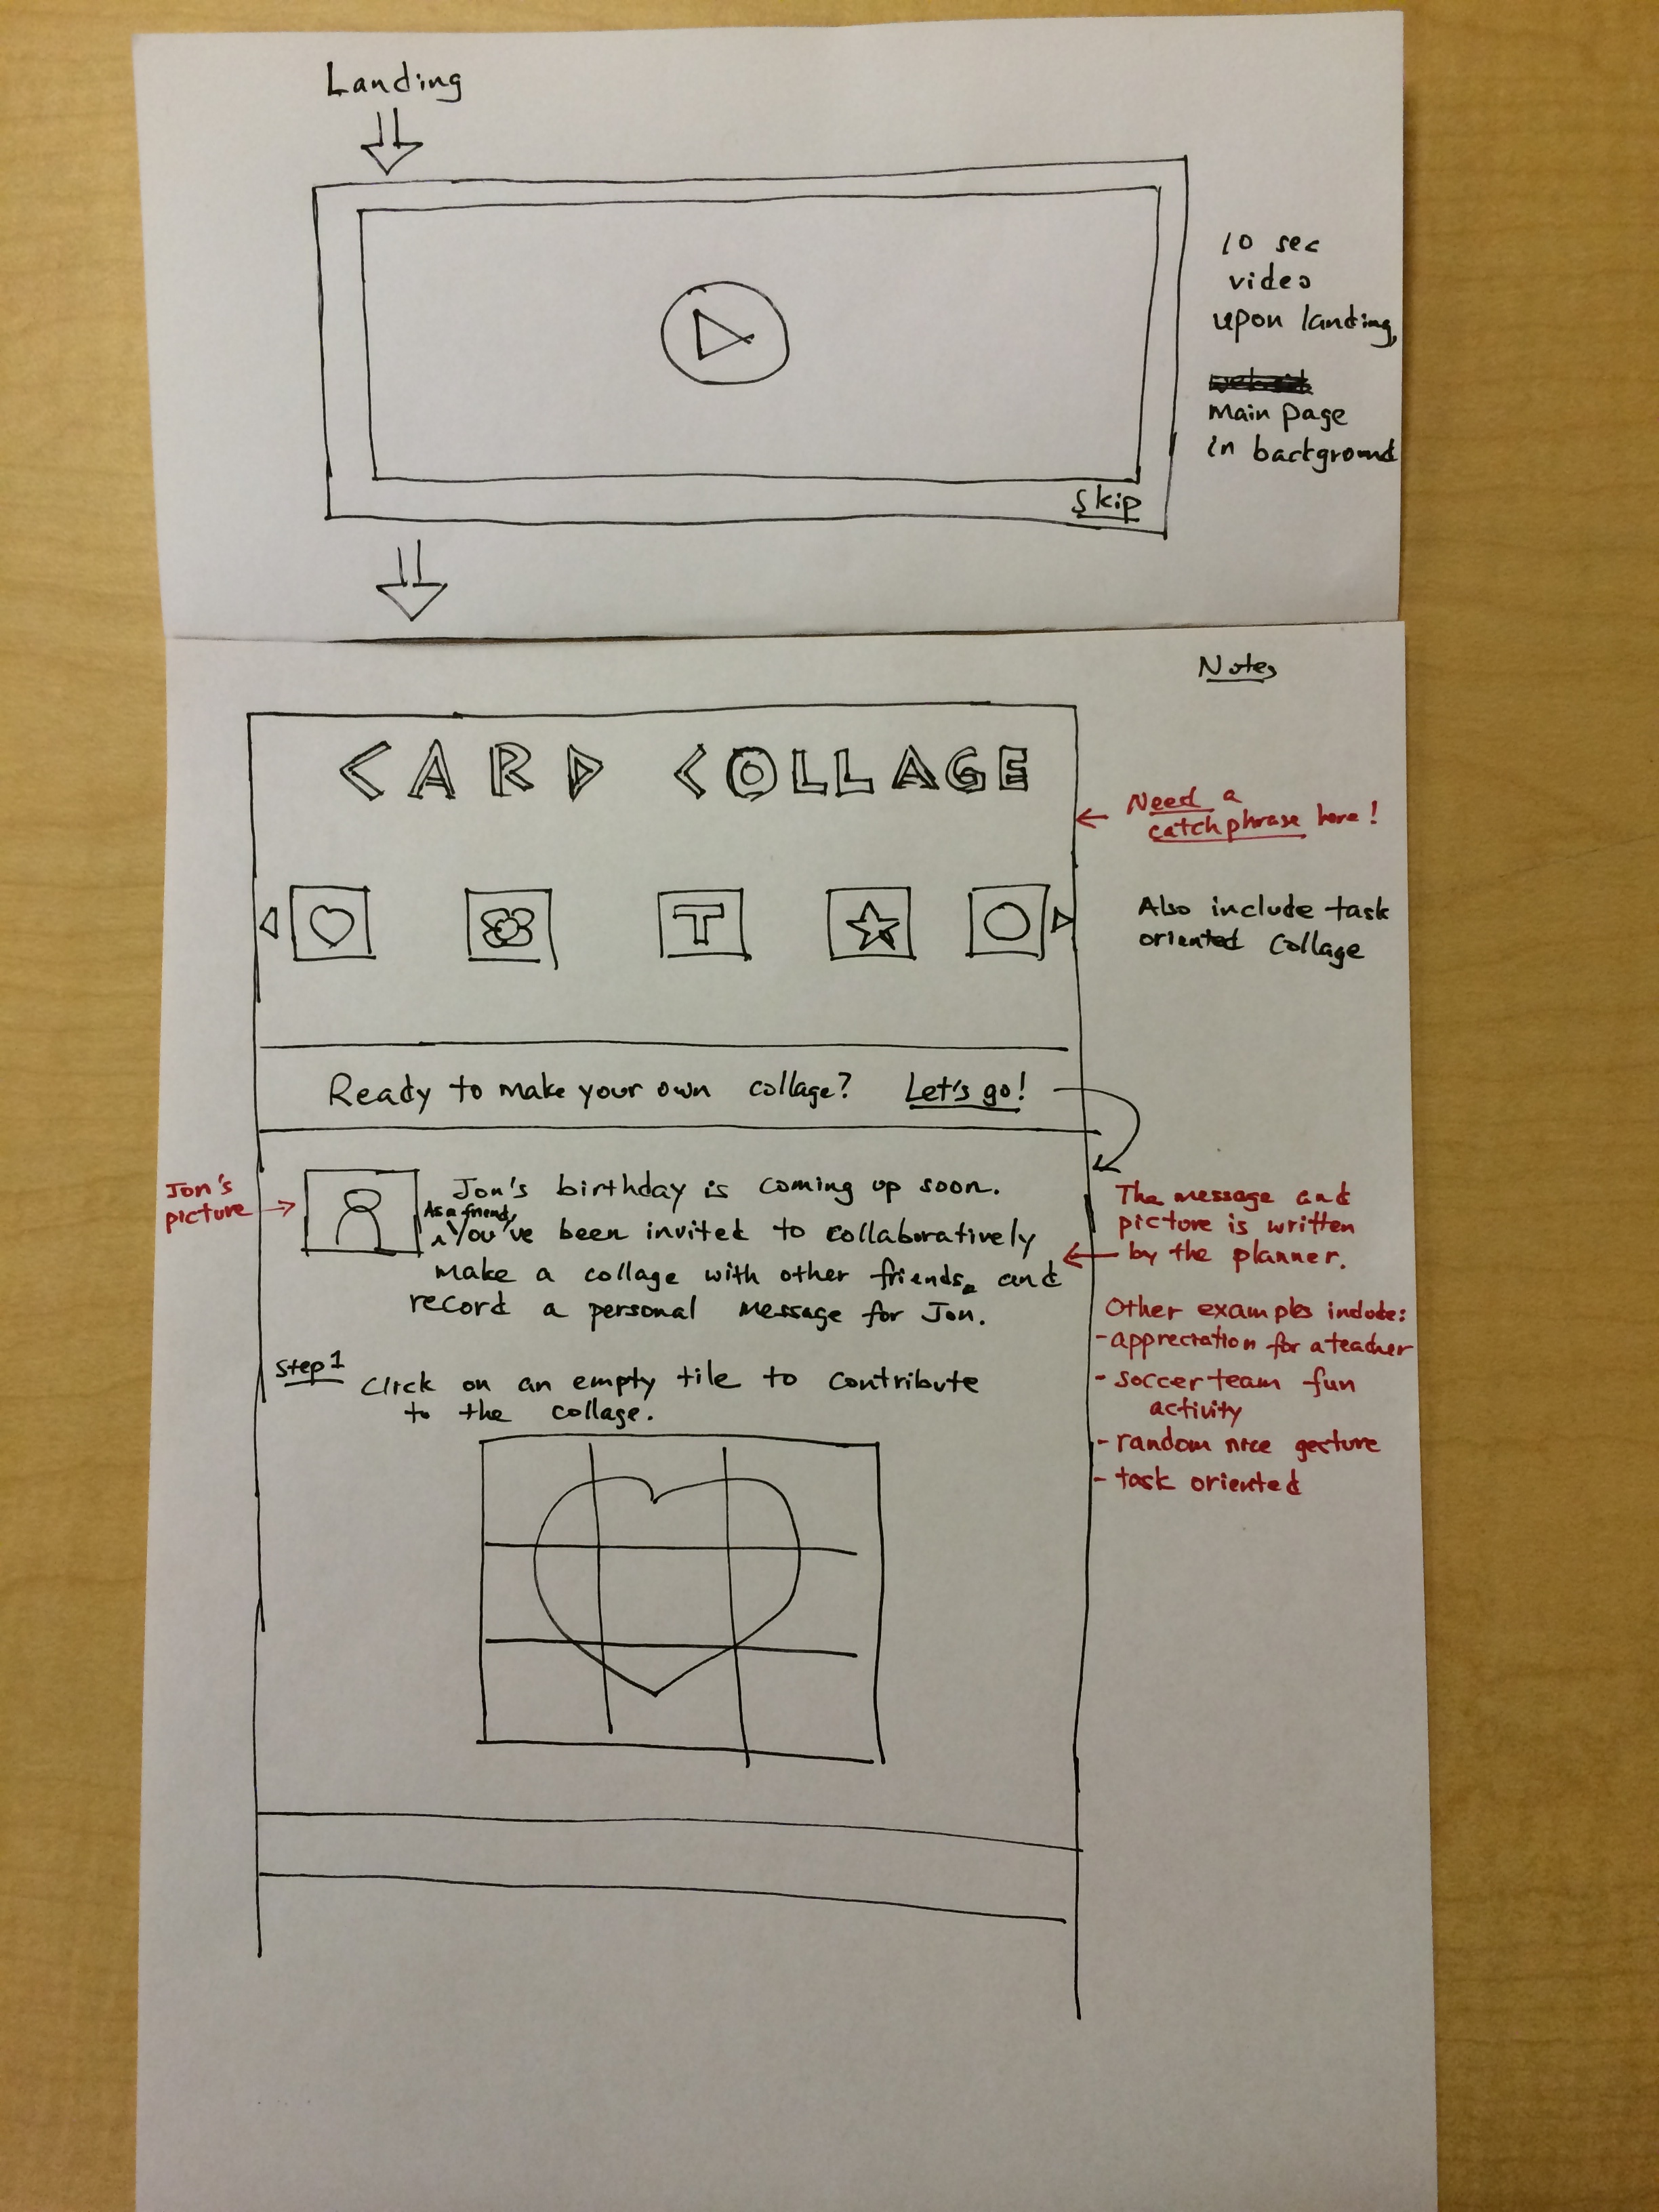 Landing
10 sec
video
upon landing,
main page
in background
Skip
Notes
CARD COLLAGE
Need a
catch phrase here!
T
Also include task
oriented collage
Ready to make your own collage? Let's go!
Jon's
picture
Jon's birthday is coming up soon.
As a friend,
You've been invited to collaboratively
make a collage with other friends, and
record a personal message for Jon.
The message and
picture is written
by the planner.
Other examples include:
- appreciation for a teacher
- soccer team fun
activity
- random nice gesture
- task oriented
Step 1
Click on an empty tile to contribute
to the collage.